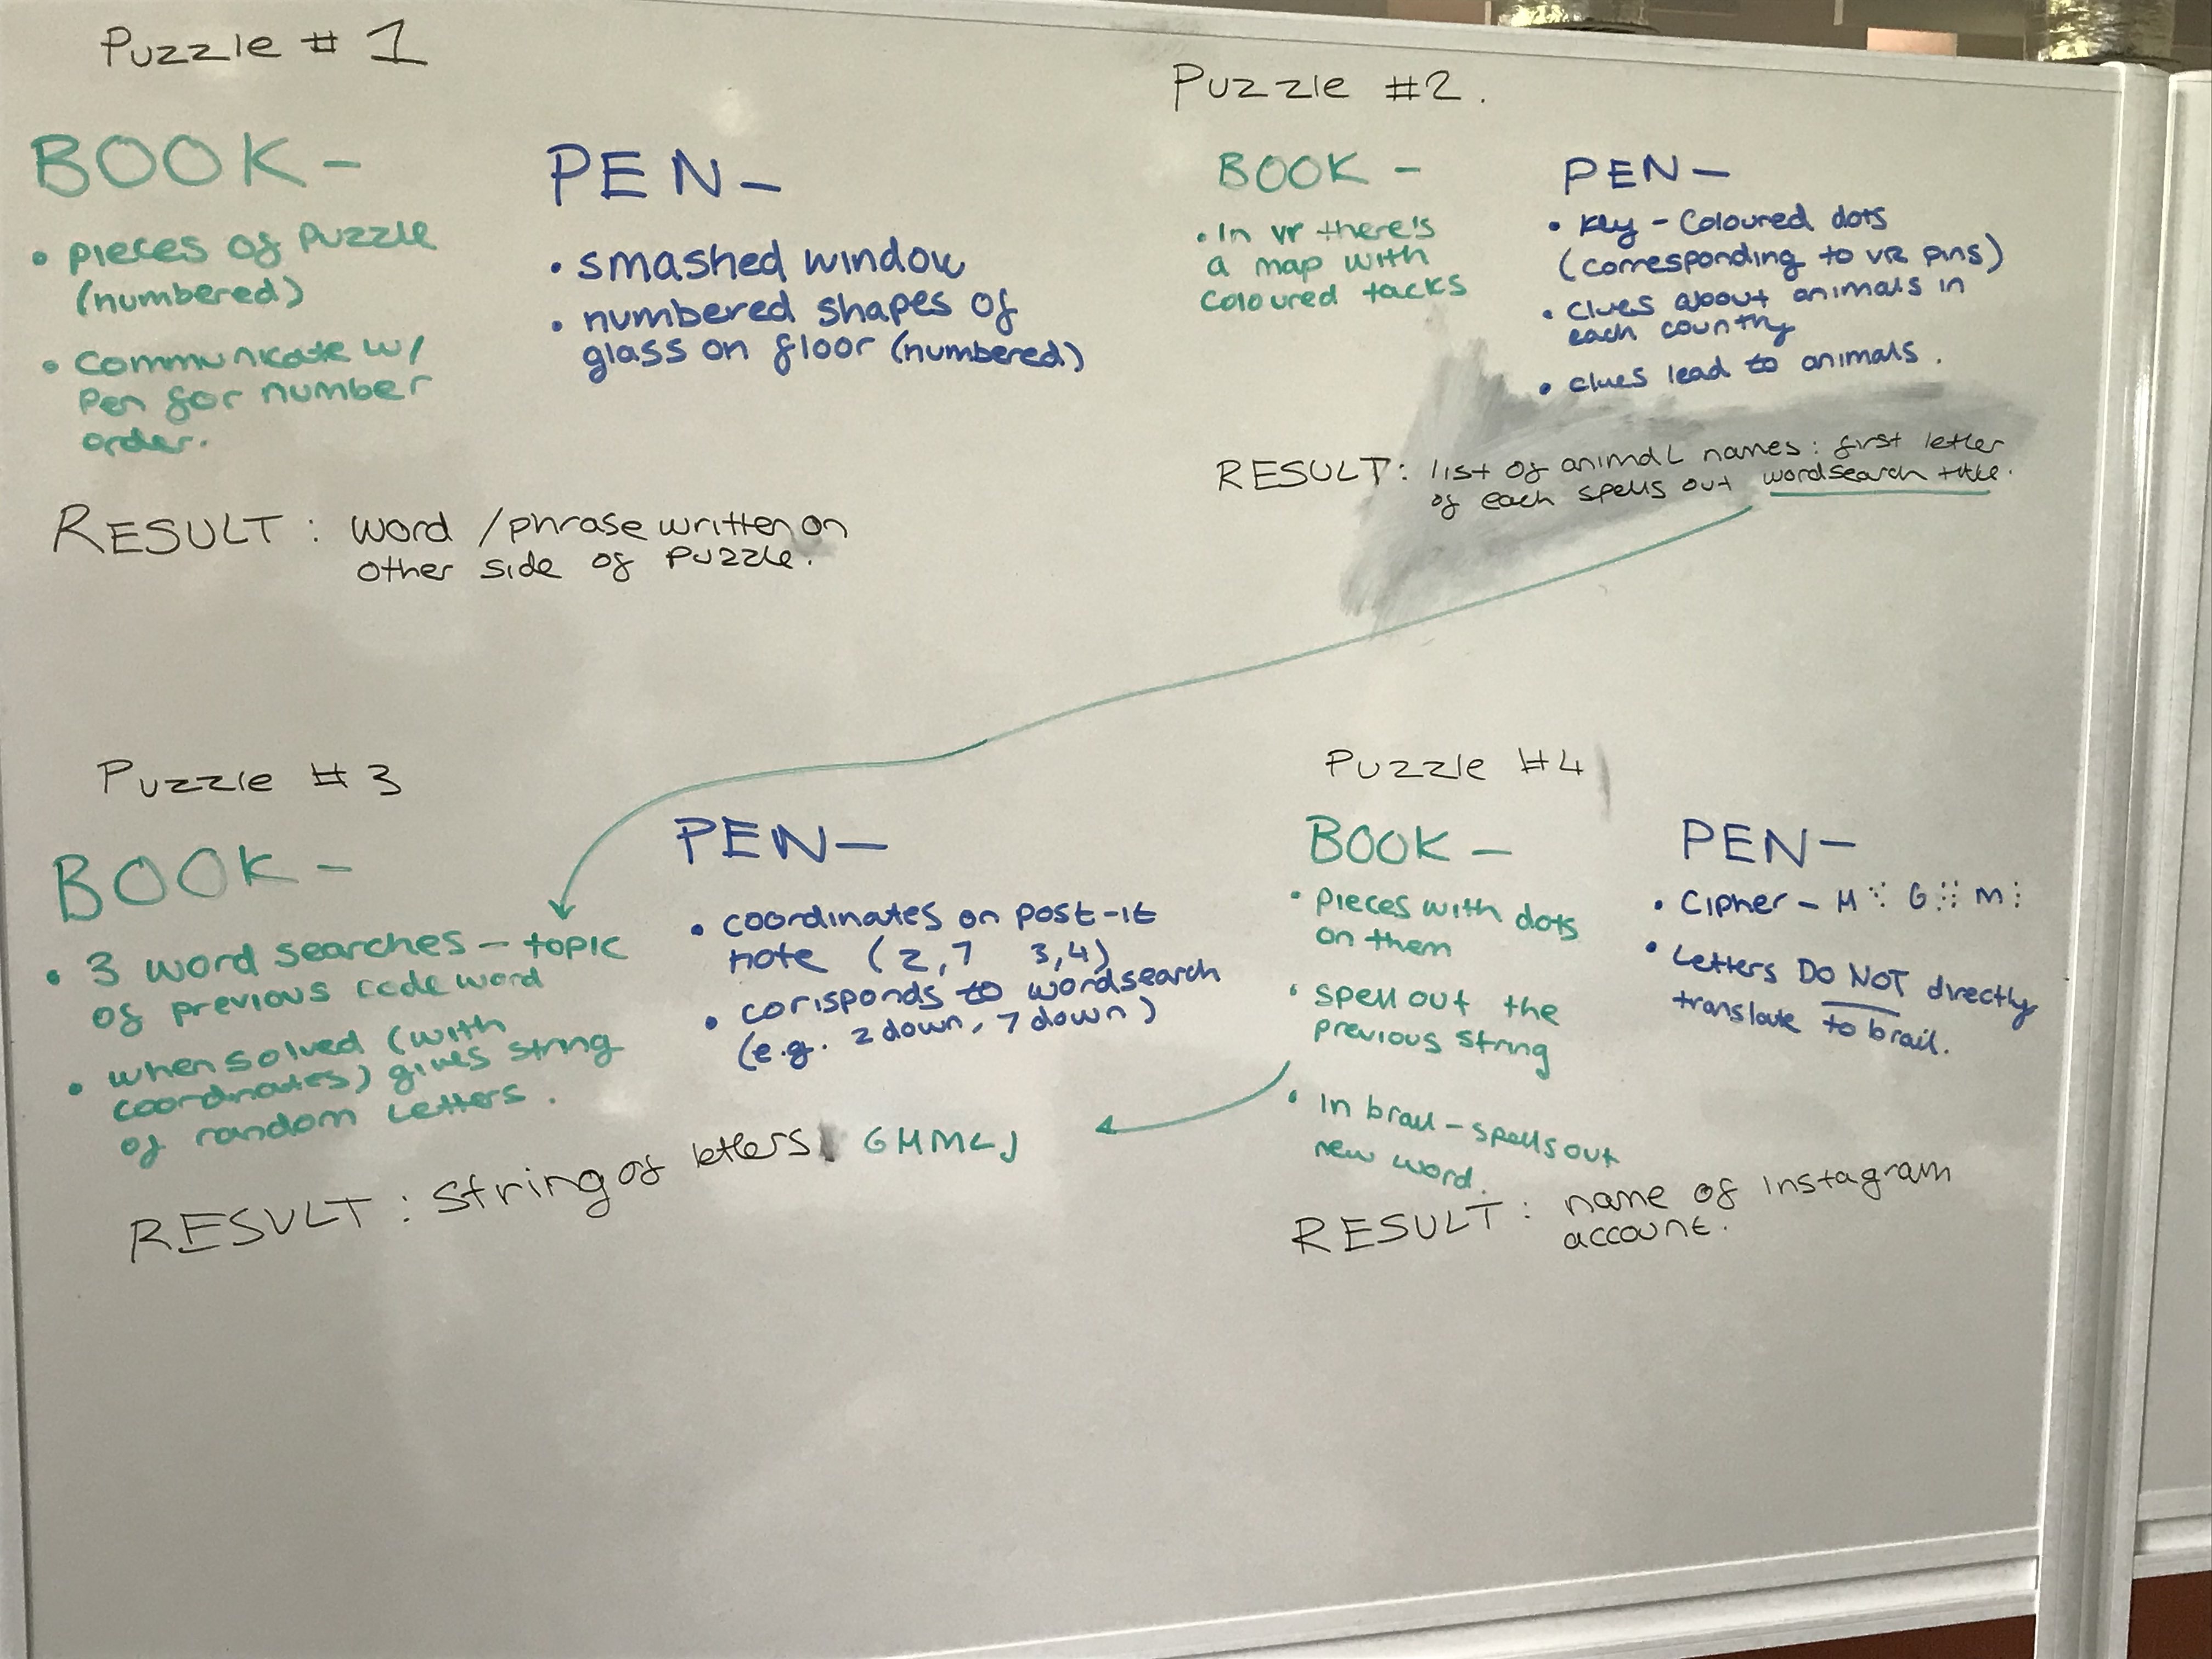 Puzzle # 1
BOOK -
• pieces of puzzle
(numbered)
• Communicate w/
Pen for number
order.
PEN -
• smashed window
• numbered shapes of
glass on floor (numbered)
RESULT : word / phrase written on
other side of puzzle.
Puzzle #2.
BOOK -
• In vr there's
a map with
coloured tacks
PEN -
• Key - Coloured dots
(corresponding to VR pins)
• clues about animals in
each country
• clues lead to animals.
RESULT: list of animal names: first letter
of each spells out wordsearch title.
Puzzle # 3
BOOK -
• 3 word searches - topic
of previous code word
• when solved (with
coordinates) gives string
of random letters.
PEN -
• coordinates on post-it
note (2,7 3,4)
• corisponds to wordsearch
(e.g. 2 down, 7 down)
RESULT : string of letters GHMLJ
Puzzle #4
BOOK -
• pieces with dots
on them
• spell out the
previous string
• In brail - spells out
new word.
PEN -
• Cipher - H G M
• Letters DO NOT directly
translate to brail.
RESULT : name of instagram
account.